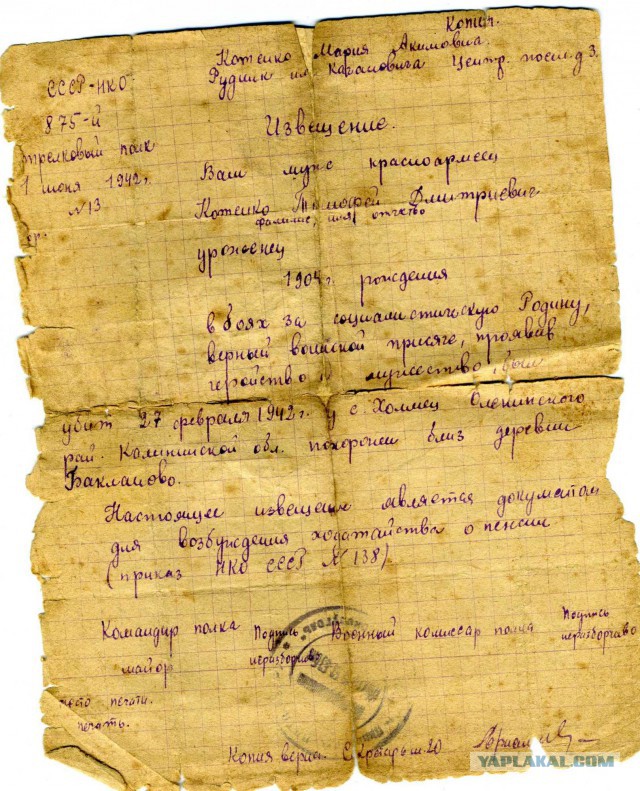 Копия.
Котенко Мария Акимовна.
Рудник им Кагановича Центр. посел. д 3.
СССР-НКО
875-й
стрелковый полк
1 июня 1942г.
N 13
Извещение.
Ваш муж красноармеец
Котенко Тимофей Дмитриевич
фамилие, имя, отчество
уроженец
1904 г. рождения
в боях за социалистическую Родину,
верный воинской присяге, проявив
геройство и мужество, был
убит 27 февраля 1942г. у с. Холмец Оленинского
рай. Калининской обл. похоронен близ деревни
Бакланово.
Настоящее извещение является документом
для возбуждения ходатайства о пенсии
(приказ НКО СССР N 138)
Командир полка Подпись Военный комиссар полка Подпись
майор неразборчиво неразборчиво
место печати.
печать.
Копия верна. Секретарь
YAPLAKAL.COM